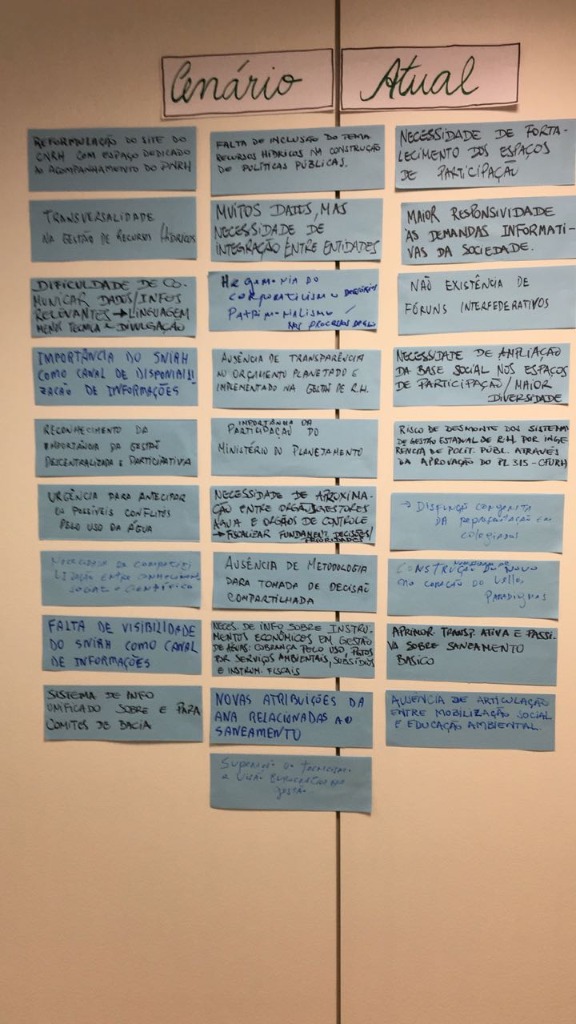 Cenário Atual
REFORMULAÇÃO DO SITE DO
CNRH COM ESPAÇO DEDICADO
AO ACOMPANHAMENTO DO PNRH
TRANSVERSALIDADE
NA GESTÃO DE RECURSOS HÍDRICOS
DIFICULDADE DE CO-
MUNICAR DADOS/INFOS
RELEVANTES → LINGUAGEM
MENOS TÉCNICA E DIVULGAÇÃO
IMPORTÂNCIA DO SNIRH
COMO CANAL DE DISPONIBILI-
ZAÇÃO DE INFORMAÇÕES
RECONHECIMENTO DA
IMPORTÂNCIA DA GESTÃO
DESCENTRALIZADA E PARTICIPATIVA
URGÊNCIA PARA ANTECIPAR
OS POSSÍVEIS CONFLITOS
PELO USO DA ÁGUA
ENTRE CONHECIMENTO
SOCIAL E CIENTÍFICO
FALTA DE VISIBILIDADE
DO SNIRH COMO CANAL
DE INFORMAÇÕES
SISTEMA DE INFO
UNIFICADO SOBRE E PARA
COMITÊS DE BACIA
FALTA DE INCLUSÃO DO TEMA
RECURSOS HÍDRICOS NA CONSTRUÇÃO
DE POLÍTICAS PÚBLICAS.
MUITOS DADOS, MAS
NECESSIDADE DE
INTEGRAÇÃO ENTRE ENTIDADES
Hegemonia do
corporativismo
Patrimonialismo
NOS PROCESSOS
AUSÊNCIA DE TRANSPARÊNCIA
NO ORÇAMENTO PLANEJADO E
IMPLEMENTADO NA GESTÃO DE R.H.
IMPORTÂNCIA DA
PARTICIPAÇÃO DO
MINISTÉRIO DO PLANEJAMENTO
NECESSIDADE DE APROXIMA-
ÇÃO ENTRE ORGÃOS GESTORES
ÁGUA E ORGÃOS DE CONTROLE
→ FISCALIZAR FUNDAMENT. DECISÕES/
PRIORIDADES
AUSÊNCIA DE METODOLOGIA
PARA TOMADA DE DECISÃO
COMPARTILHADA
NECES. DE INFO SOBRE INSTRU-
MENTOS ECONÔMICOS EM GESTÃO
DE ÁGUAS: COBRANÇA PELO USO, PGTOS
POR SERVIÇOS AMBIENTAIS, SUBSÍDIOS
E INSTRUM. FISCAIS
NOVAS ATRIBUIÇÕES DA
ANA RELACIONADAS AO
SANEAMENTO
Superação do
a visão
gestão
NECESSIDADE DE FORTA-
LECIMENTO DOS ESPAÇOS
DE PARTICIPAÇÃO
MAIOR RESPONSIVIDADE
ÀS DEMANDAS INFORMATI-
VAS DA SOCIEDADE.
NÃO EXISTÊNCIA DE
FÓRUNS INTERFEDERATIVOS
NECESSIDADE DE AMPLIAÇÃO
DA BASE SOCIAL NOS ESPAÇOS
DE PARTICIPAÇÃO/MAIOR
DIVERSIDADE
RISCO DE DESMONTE DO SISTEMA
DE GESTÃO ESTADUAL DE R.H. POR INGE-
RÊNCIA DE POLIT. PÚBL. ATRAVÉS
DA APROVAÇÃO DO PL
→ DISFUNÇÃO
DA REPRESENTAÇÃO EM
COLEGIADOS
CONSTRUÇÃO DO NOVO
NO CORAÇÃO DO VELHO
PARADIGMAS
APRIMOR TRANSP. ATIVA E PASSI-
VA SOBRE SANEAMENTO
BÁSICO
AUSÊNCIA DE ARTICULAÇÃO
ENTRE MOBILIZAÇÃO SOCIAL
E EDUCAÇÃO AMBIENTAL.